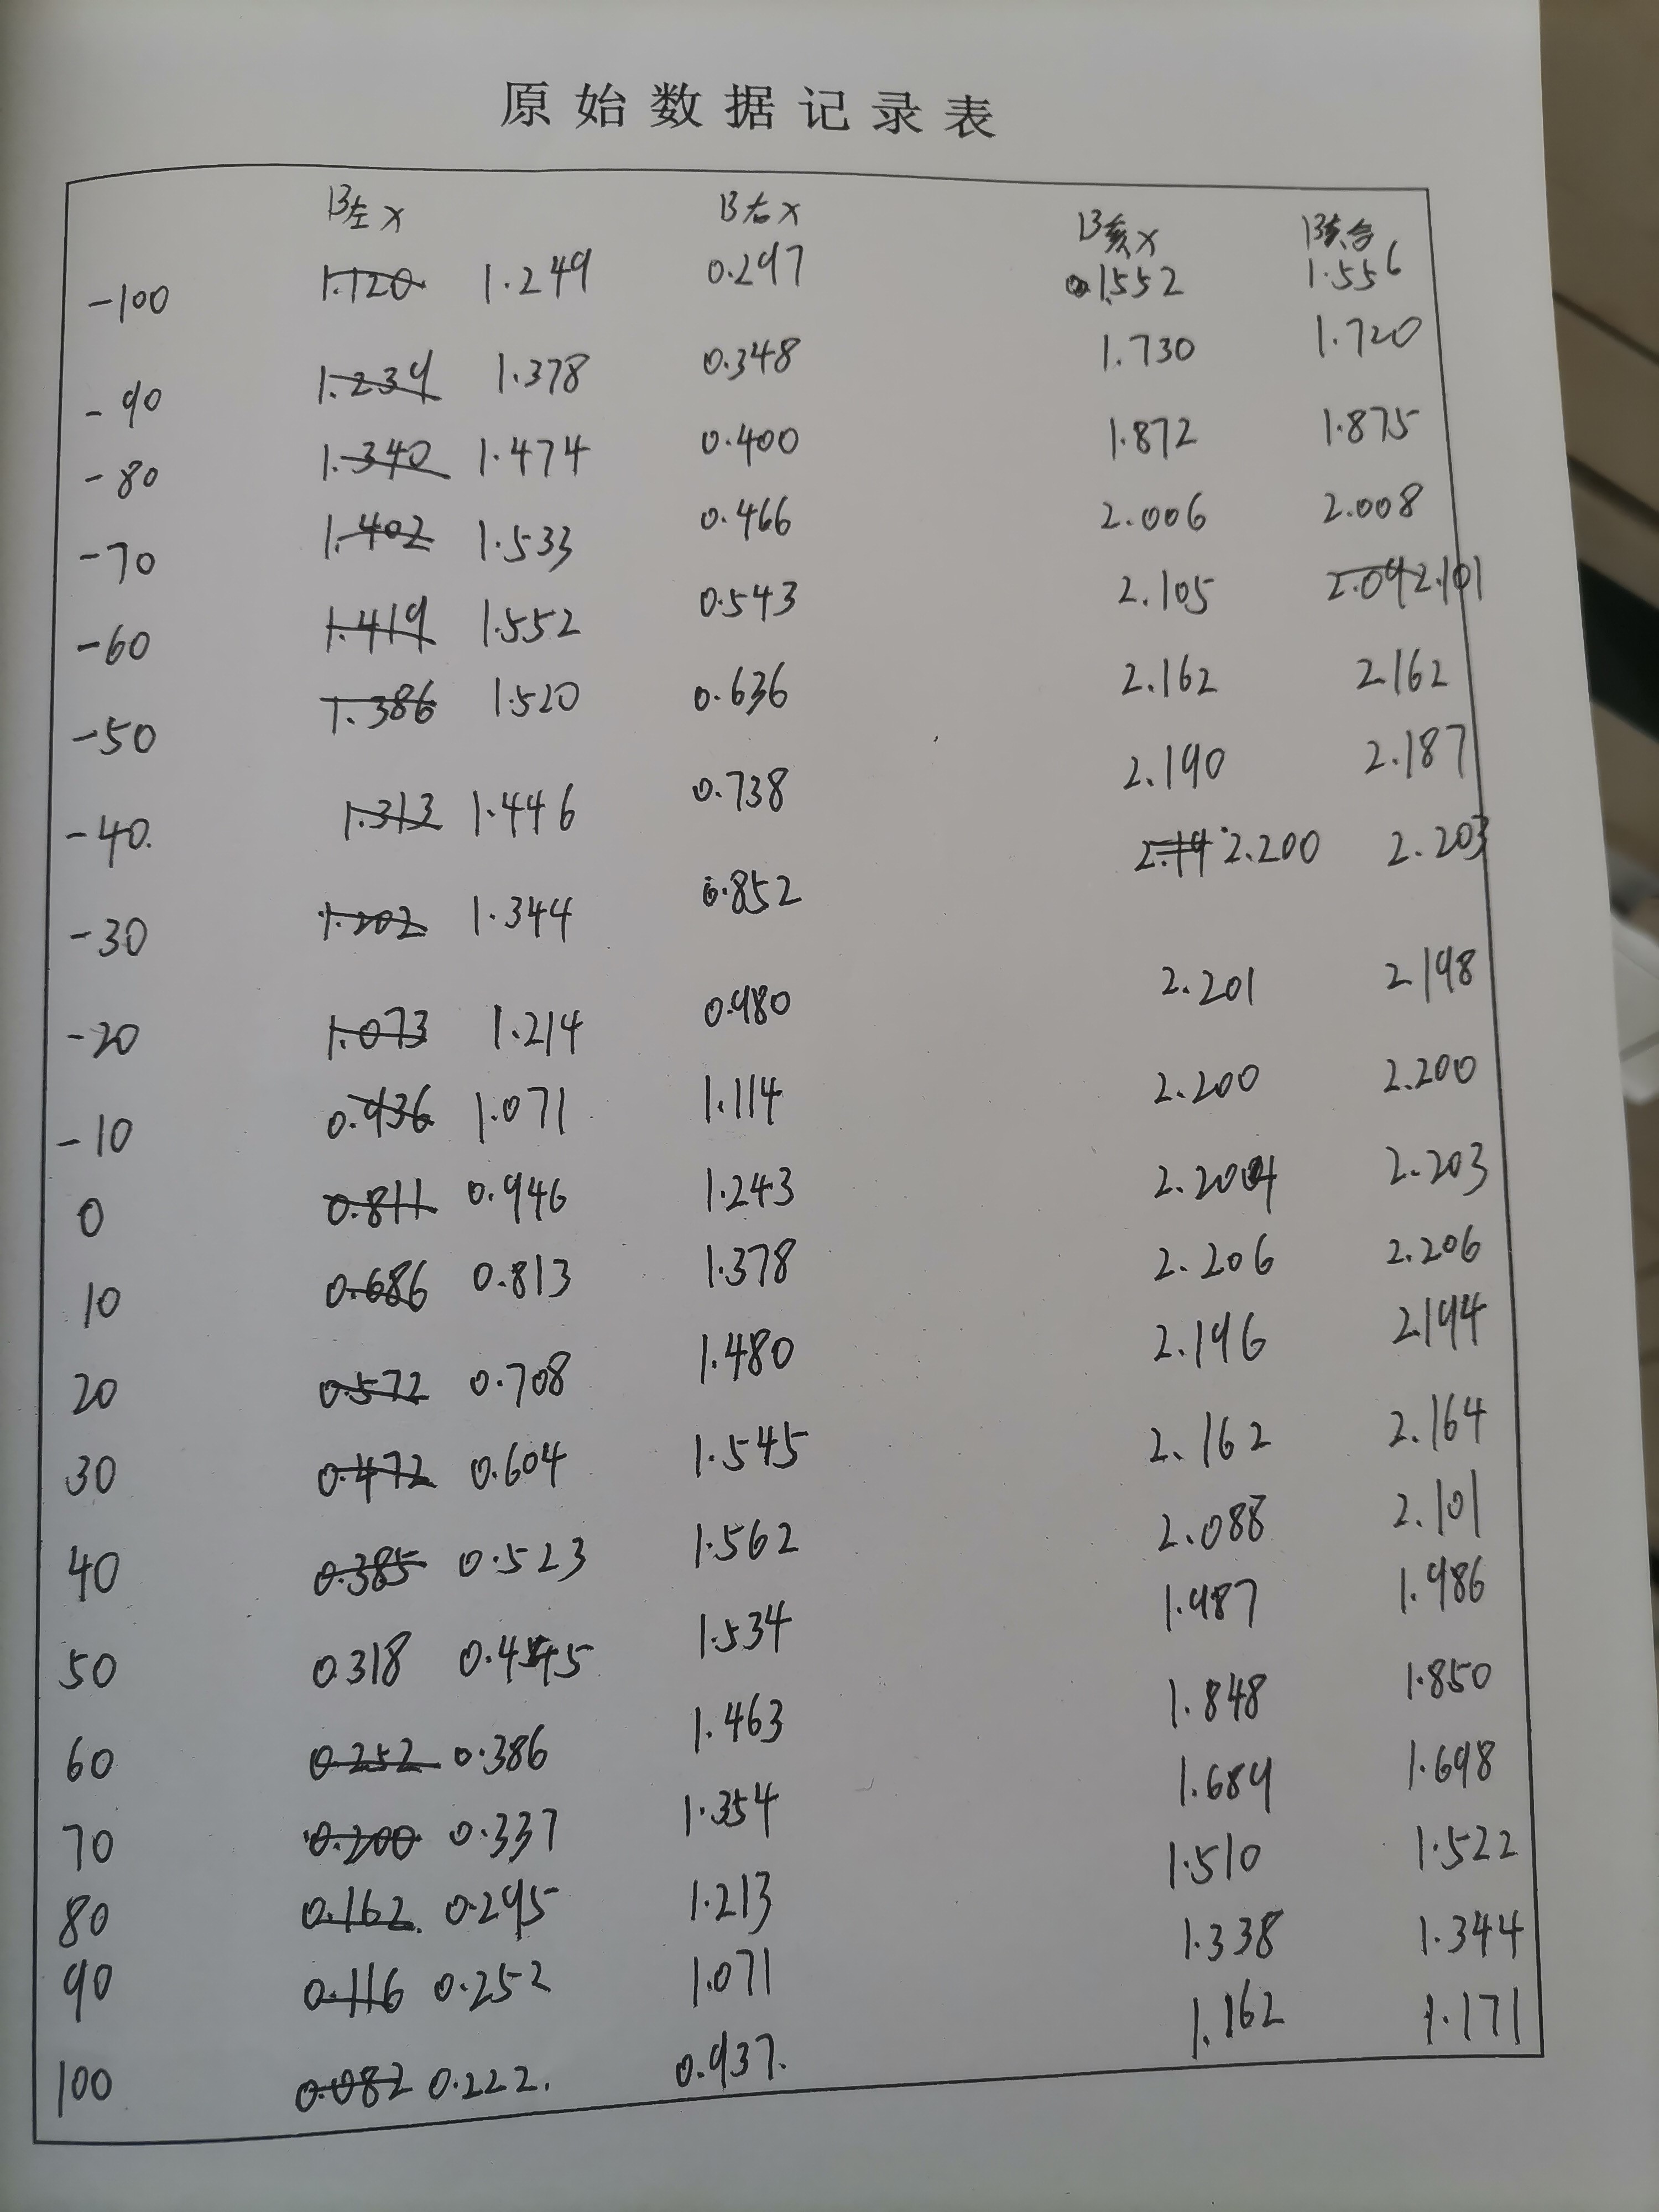 原始数据记录表
B左x B右x B亥x B亥合
-100 1.120 1.249 0.297 1.552 1.556
-90 1.239 1.378 0.348 1.730 1.720
-80 1.340 1.474 0.400 1.872 1.875
-70 1.402 1.533 0.466 2.006 2.008
-60 1.419 1.552 0.543 2.105 2.09 2.101
-50 1.386 1.520 0.636 2.162 2.162
-40. 1.313 1.446 0.738 2.190 2.187
-30 1.202 1.344 0.852 2.19 2.200 2.203
-20 1.073 1.214 0.980 2.201 2.198
-10 0.936 1.071 1.114 2.200 2.200
0 0.811 0.946 1.243 2.204 2.203
10 0.686 0.813 1.378 2.206 2.206
20 0.572 0.708 1.480 2.196 2.194
30 0.472 0.604 1.545 2.162 2.164
40 0.385 0.523 1.562 2.088 2.101
50 0.318 0.445 1.534 1.987 1.986
60 0.252 0.386 1.463 1.848 1.850
70 0.200 0.337 1.354 1.689 1.698
80 0.162 0.295 1.213 1.510 1.522
90 0.116 0.252 1.071 1.338 1.344
100 0.082 0.222. 0.937. 1.162 1.171